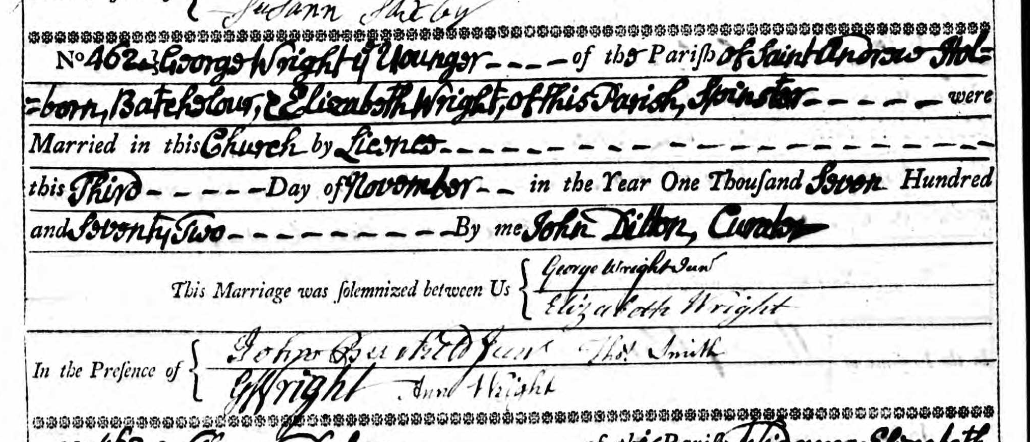 Susann
No 462 } George Wright ye Younger - - - - of the Pariſh of Saint Andrew Hol=
=born, Batchelour, & Elizabeth Wright, of this Parish, Spinster - - - - - were
Married in this Church by Licence - - - - - - - - - - - - - - - - - -
this Third - - - - - - Day of November - - in the Year One Thouſand Seven Hundred
and Seventy Two - - - - - - - - - - By me John Dillon, Curate
This Marriage was ſolemnized between Us { George Wright Junr
Elizabeth Wright
In the Preſence of { John Junr Thos Smith
G Wright Ann Wright
of this Pariſh Elizabeth